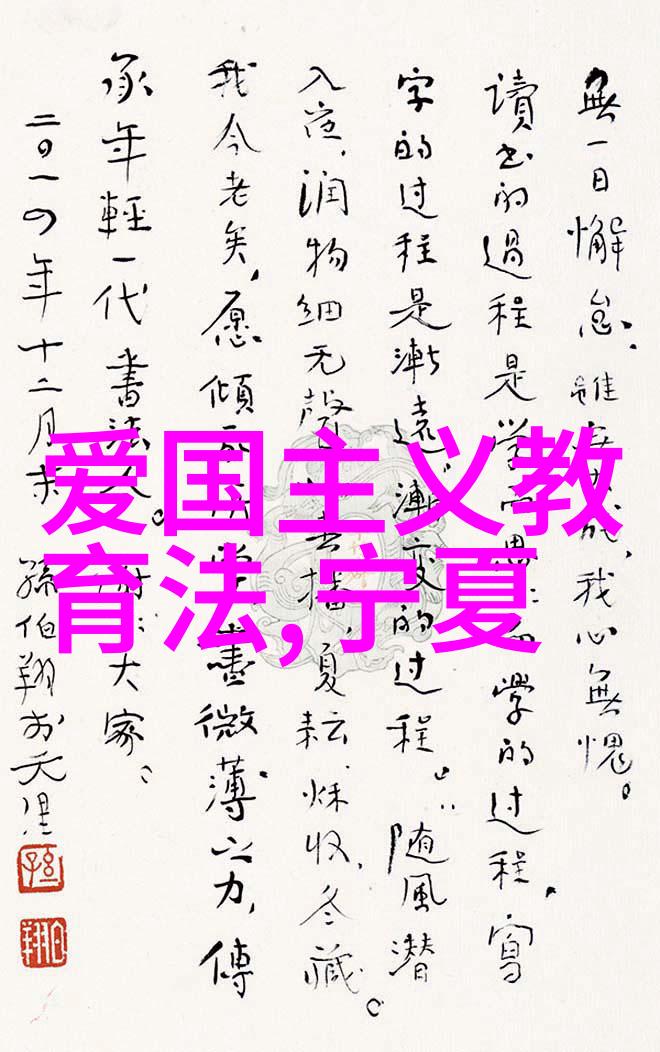 爱国主义教
育法,宁夏
無一日懈怠,雖成,我心無愧。
讀书的過程是学學的过程,寫
字的过程是漸遠、漸变的过程。随風潜
入夜,润物细无聲播,夏耘、秋收、冬藏。
我今老矣,愿傾盡微薄之力,傳
承年輕一代書法人。谢谢大家。
二〇一四年十二月末 孫伯翔於天津
孫
伯翔